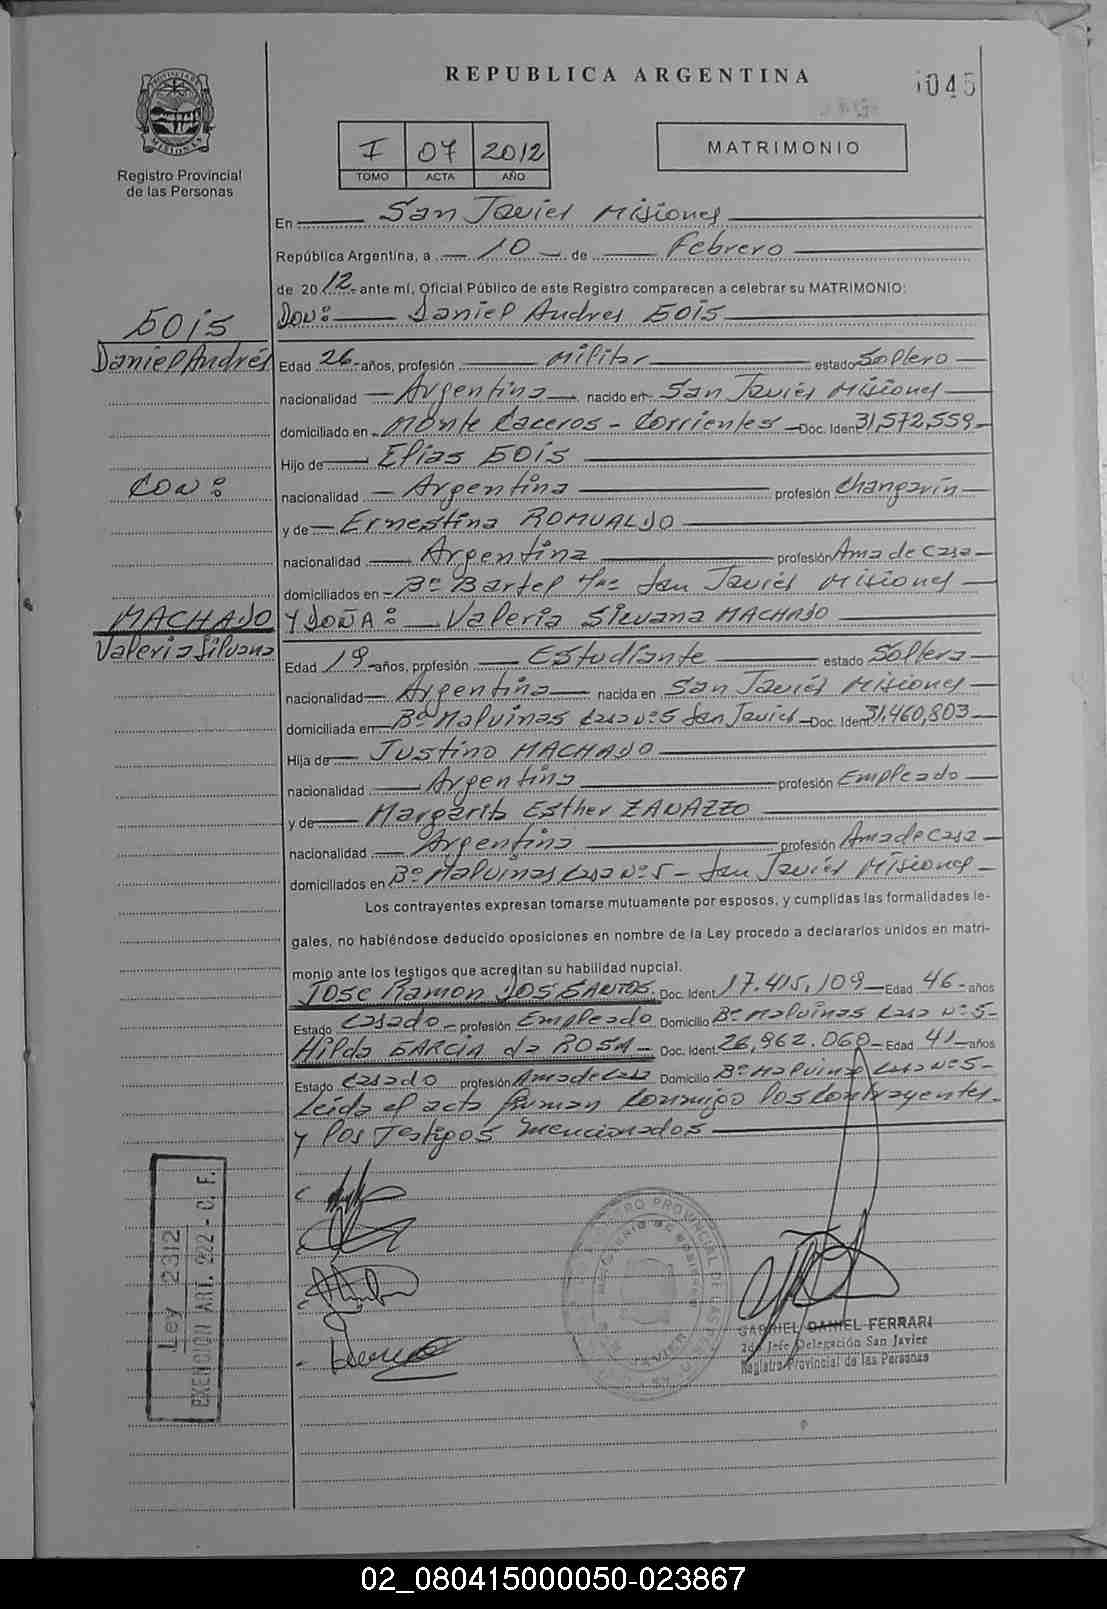 REPUBLICA ARGENTINA
045
Registro Provincial
de las Personas
I 07 2012
TOMO ACTA AÑO
MATRIMONIO
En San Javier Misiones
República Argentina, a 10 de Febrero
de 2012 ante mí, Oficial Público de este Registro comparecen a celebrar su MATRIMONIO:
DON: Daniel Andres GOIS
GOIS
Daniel Andrés
Edad 26 años, profesión Militar estado Soltero
nacionalidad Argentina nacido en San Javier Misiones
domiciliado en Monte Caceros - Corrientes Doc. Ident 31,572,559
Hijo de Elias GOIS
CON:
nacionalidad Argentina profesión Changarín
y de Ernestina ROMUALDO
nacionalidad Argentina profesión Ama de Casa
domiciliados en Bº Bartel San Javier Misiones
MACHADO
Valeria Silvana
Y DOÑA: Valeria Silvana MACHADO
Edad 19 años, profesión Estudiante estado Soltera
nacionalidad Argentina nacida en San Javier Misiones
domiciliada en Bº Malvinas Casa Nº 5 San Javier Doc. Ident 31.460,803
Hija de Justino MACHADO
nacionalidad Argentina profesión Empleado
y de Margarita Esther ZANAZZO
nacionalidad Argentina profesión Ama de Casa
domiciliados en Bº Malvinas Casa Nº 5 - San Javier Misiones
Los contrayentes expresan tomarse mutuamente por esposos, y cumplidas las formalidades le-
gales, no habiéndose deducido oposiciones en nombre de la Ley procedo a declararlos unidos en matri-
monio ante los testigos que acreditan su habilidad nupcial.
Jose Ramon DOS SANTOS Doc. Ident. 17.415,109 Edad 46 años
Estado Casado profesión Empleado Domicilio Bº Malvinas Casa Nº 5
Hilda GARCIA da ROSA Doc. Ident. 26,962.060 Edad 41 años
Estado Casado profesión Ama de Casa Domicilio Bº Malvinas Casa Nº 5
Leida el acta firman conmigo los contrayentes
y los Testigos mencionados
Ley 2312
EXENCION ART. 222 - C. F.
GABRIEL DANIEL FERRARI
2do Jefe Delegación San Javier
Registro Provincial de las Personas
02_080415000050-023867